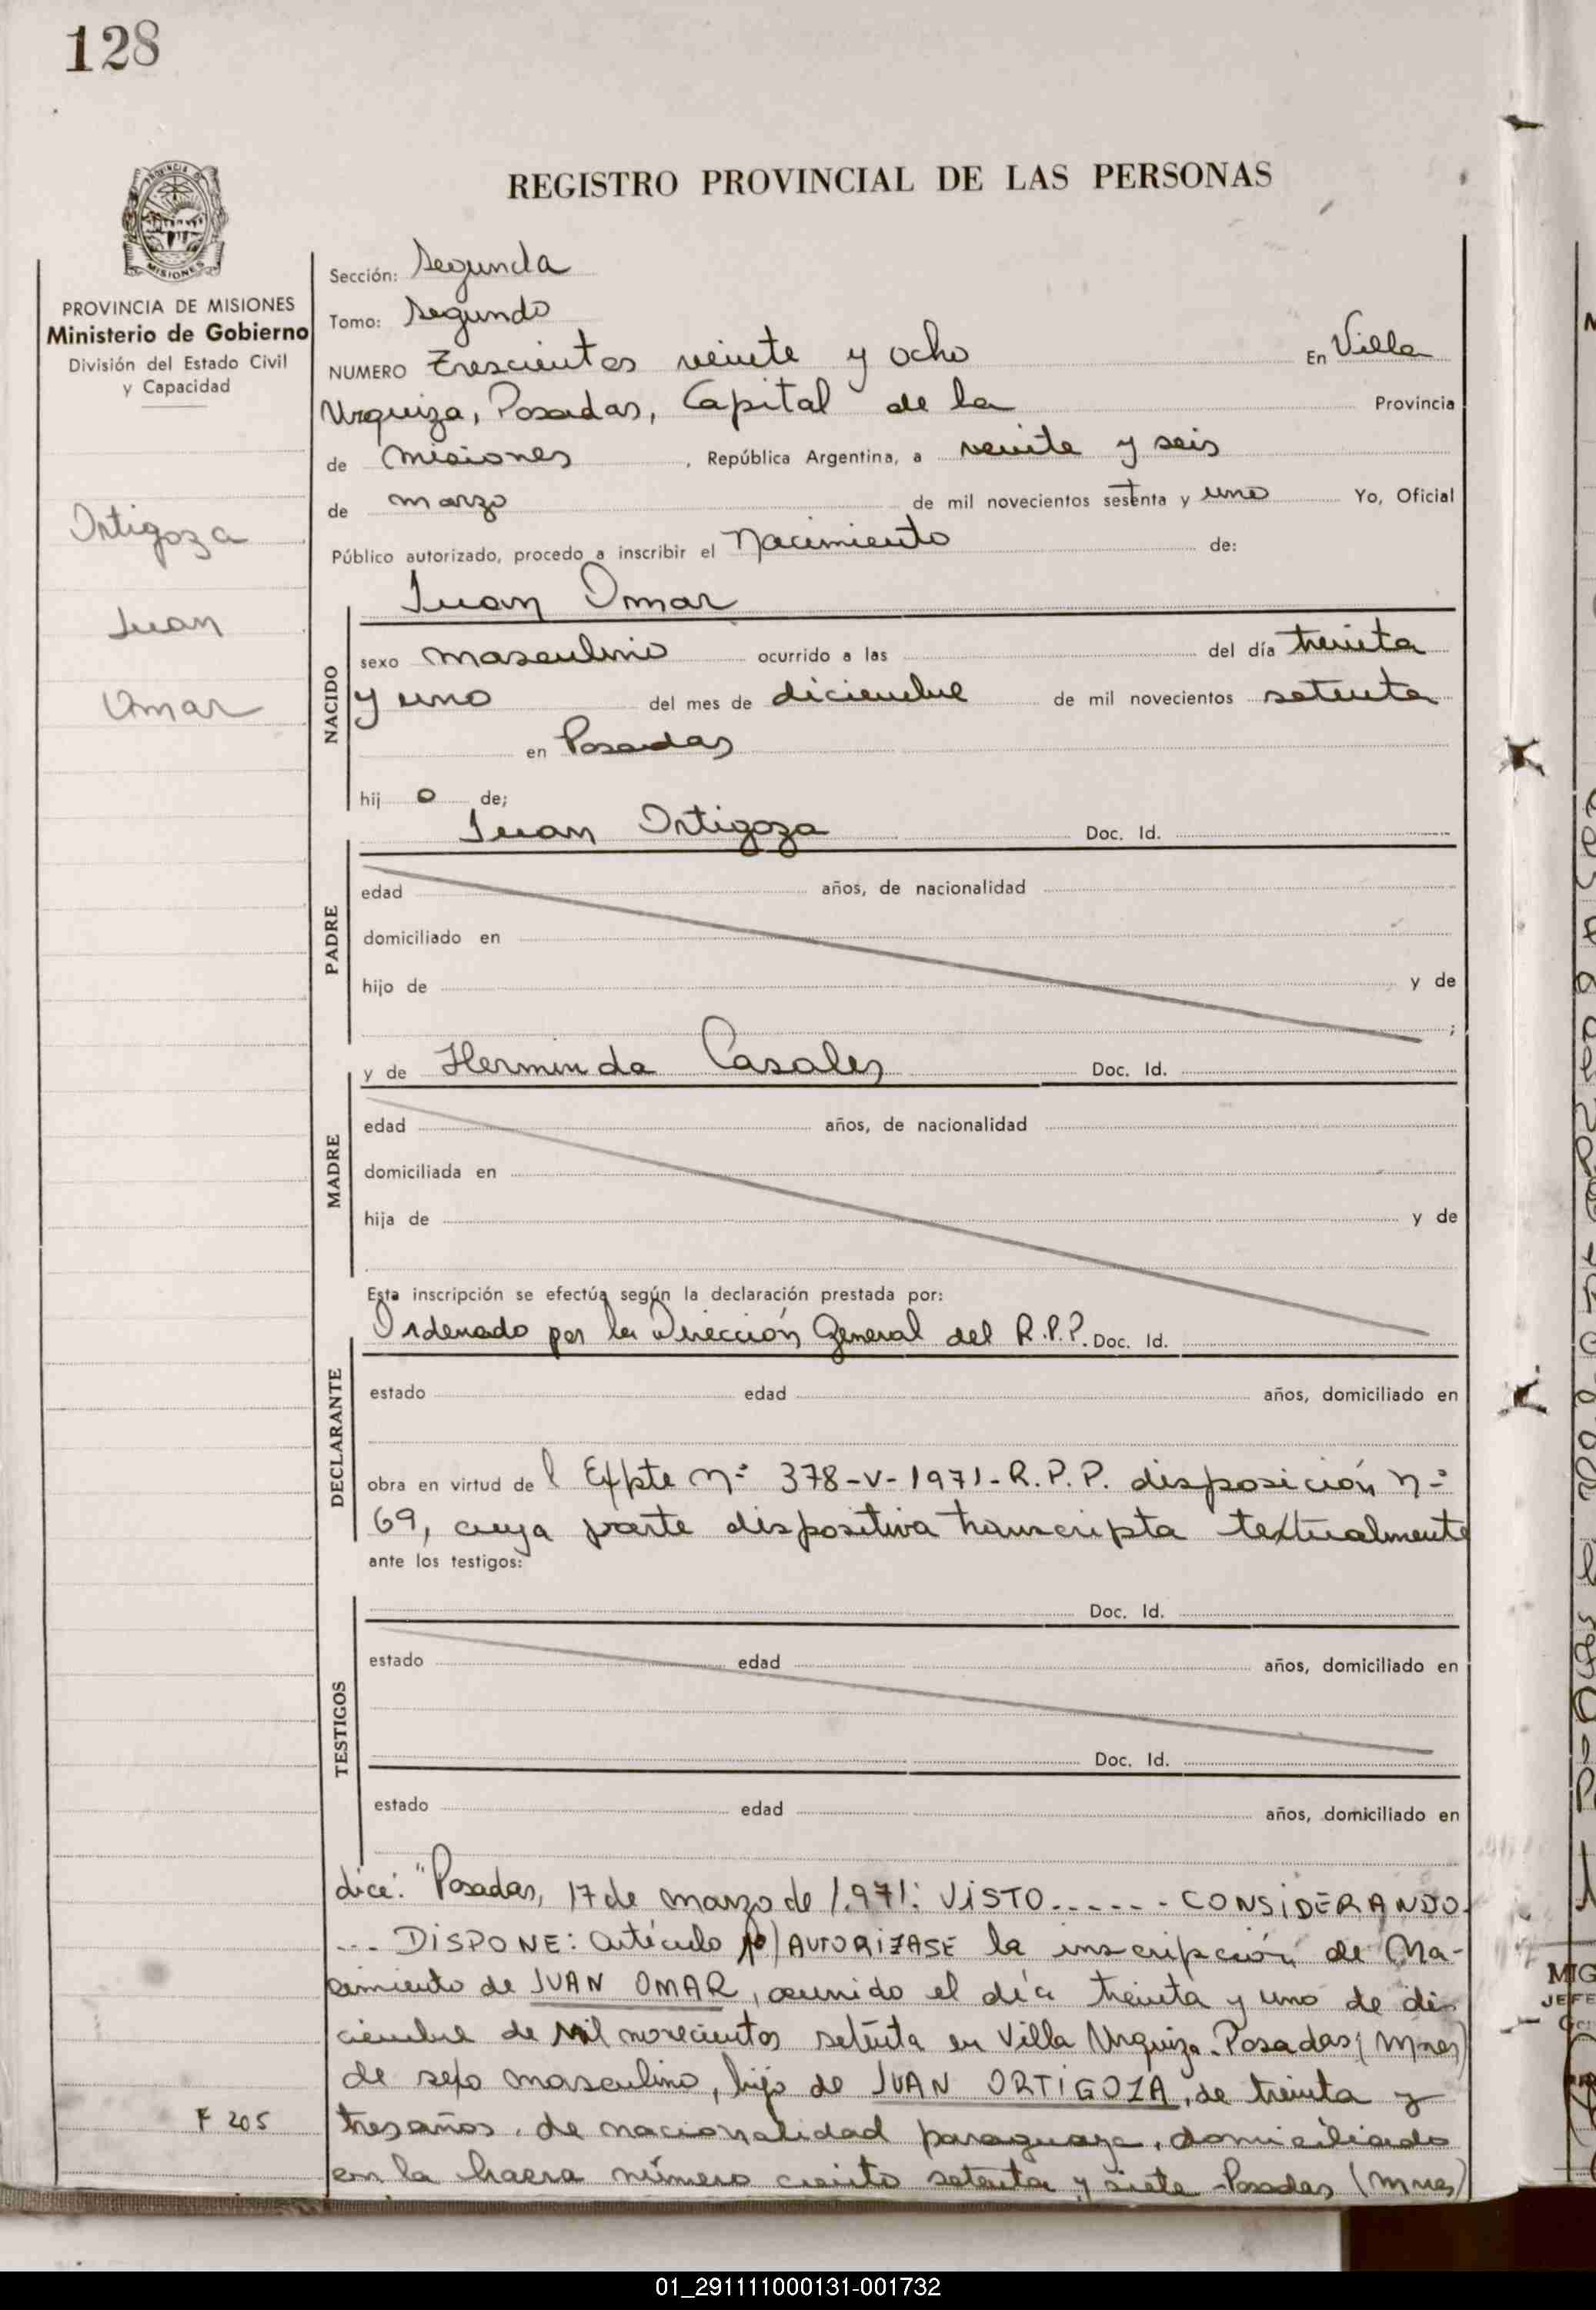 128
REGISTRO PROVINCIAL DE LAS PERSONAS
PROVINCIA DE MISIONES
PROVINCIA DE MISIONES
Ministerio de Gobierno
División del Estado Civil
y Capacidad
Ortigoza
Juan
Omar
Sección: Segunda
Tomo: Segundo
NUMERO Trescientos veinte y ocho En Villa
Urquiza, Posadas, Capital de la Provincia
de Misiones, República Argentina, a veinte y seis
de marzo de mil novecientos sesenta y uno Yo, Oficial
Público autorizado, procedo a inscribir el Nacimiento de:
Juan Omar
NACIDO
sexo masculino ocurrido a las del día treinta
y uno del mes de diciembre de mil novecientos setenta
en Posadas
hij o de;
Juan Ortigoza Doc. Id.
PADRE
edad años, de nacionalidad
domiciliado en
hijo de y de
;
y de Herminda Casales Doc. Id.
MADRE
edad años, de nacionalidad
domiciliada en
hija de y de
Esta inscripción se efectúa según la declaración prestada por:
Ordenado por la Dirección General del R.P.P. Doc. Id.
DECLARANTE
estado edad años, domiciliado en
obra en virtud de l Expte nº 378-V-1971-R.P.P. disposición nº
69, cuya parte dispositiva transcripta textualmente
ante los testigos:
Doc. Id.
TESTIGOS
estado edad años, domiciliado en
Doc. Id.
estado edad años, domiciliado en
dice: "Posadas, 17 de marzo de 1.971: VISTO...... CONSIDERANDO.
... DISPONE: Artículo 1º) AUTORIZASE la inscripción de Na-
cimiento de JUAN OMAR, ocurrido el día treinta y uno de di-
ciembre de Mil novecientos setenta en Villa Urquiza-Posadas (Mnes)
de sexo masculino, hijo de JUAN ORTIGOZA, de treinta y
tres años, de nacionalidad paraguaya, domiciliado
en la chacra número ciento setenta y siete -Posadas (Mnes)
F 205
01_291111000131-001732